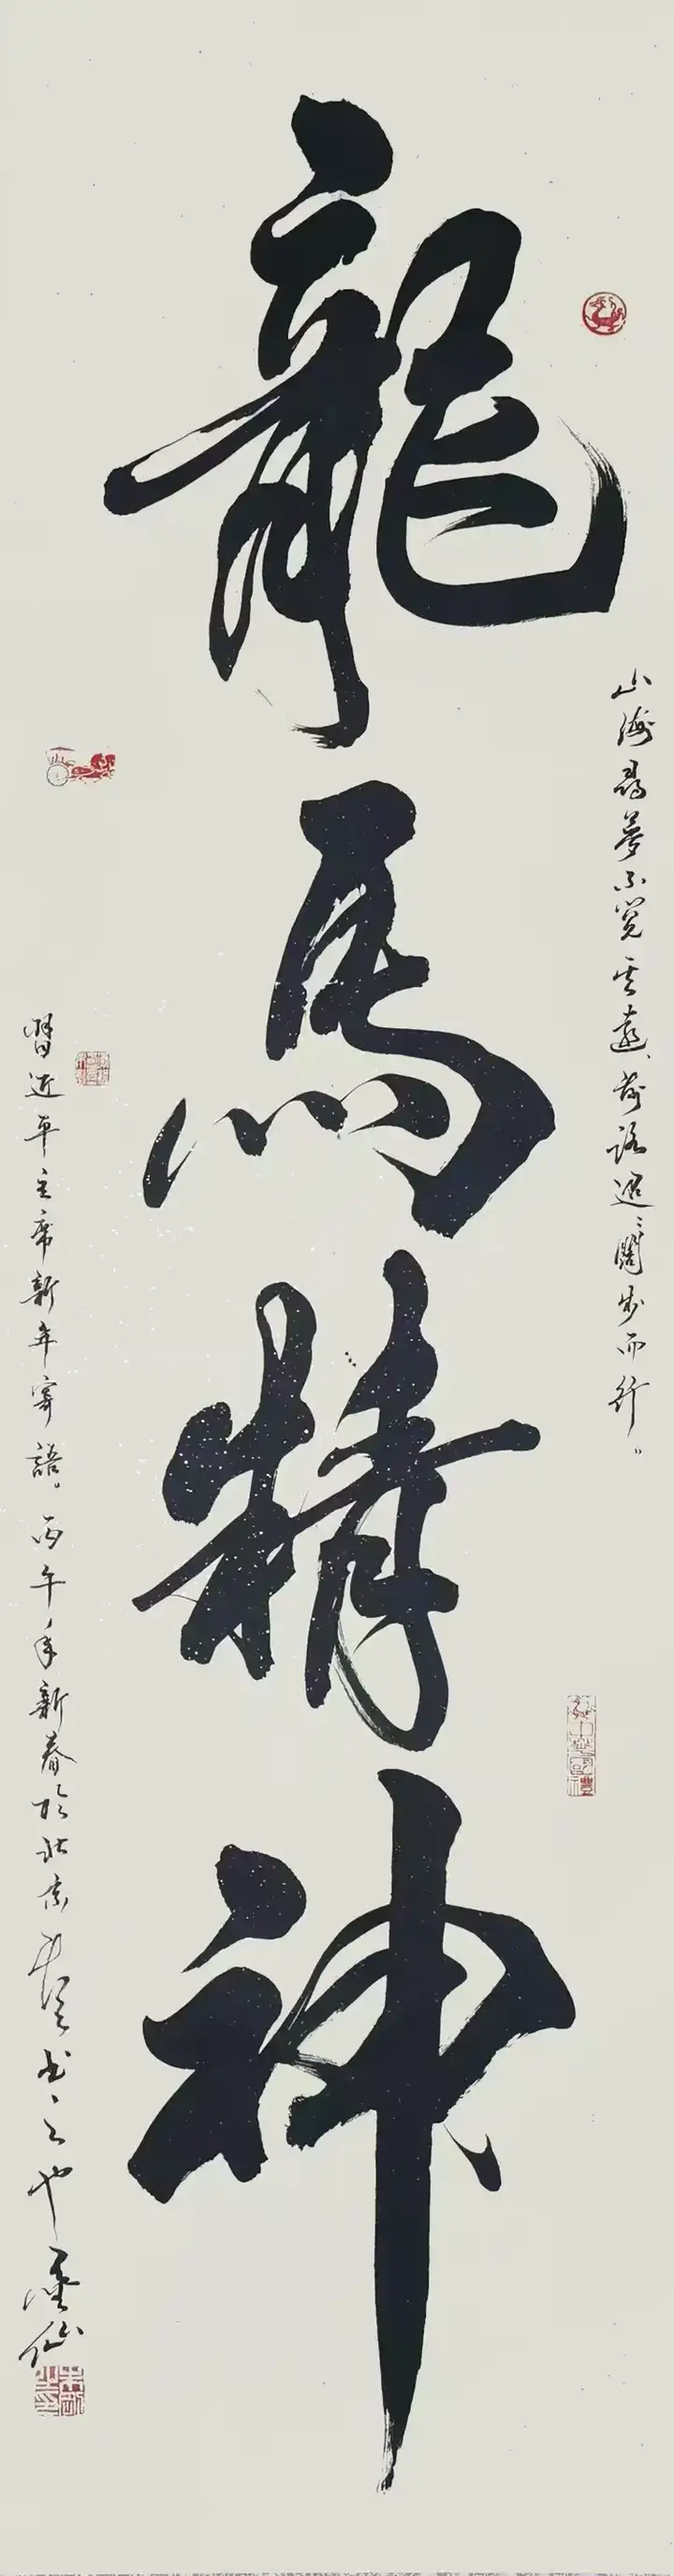 山海尋夢不覺其遠、前路迢〻闊步而行。
龍馬精神
習近平主席新年寄語。丙午年新春於北京書之也